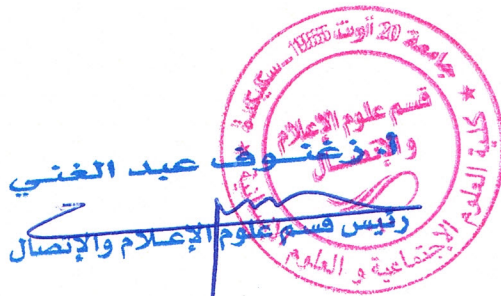 جامعة 20 أوت 1955 ـ سكيكدة
كلية العلوم الإجتماعية و العلوم
قسم علوم الإعلام
والإتصال
زغنوف عبد الغني
رئيس قسم علوم الإعلام والإتصال